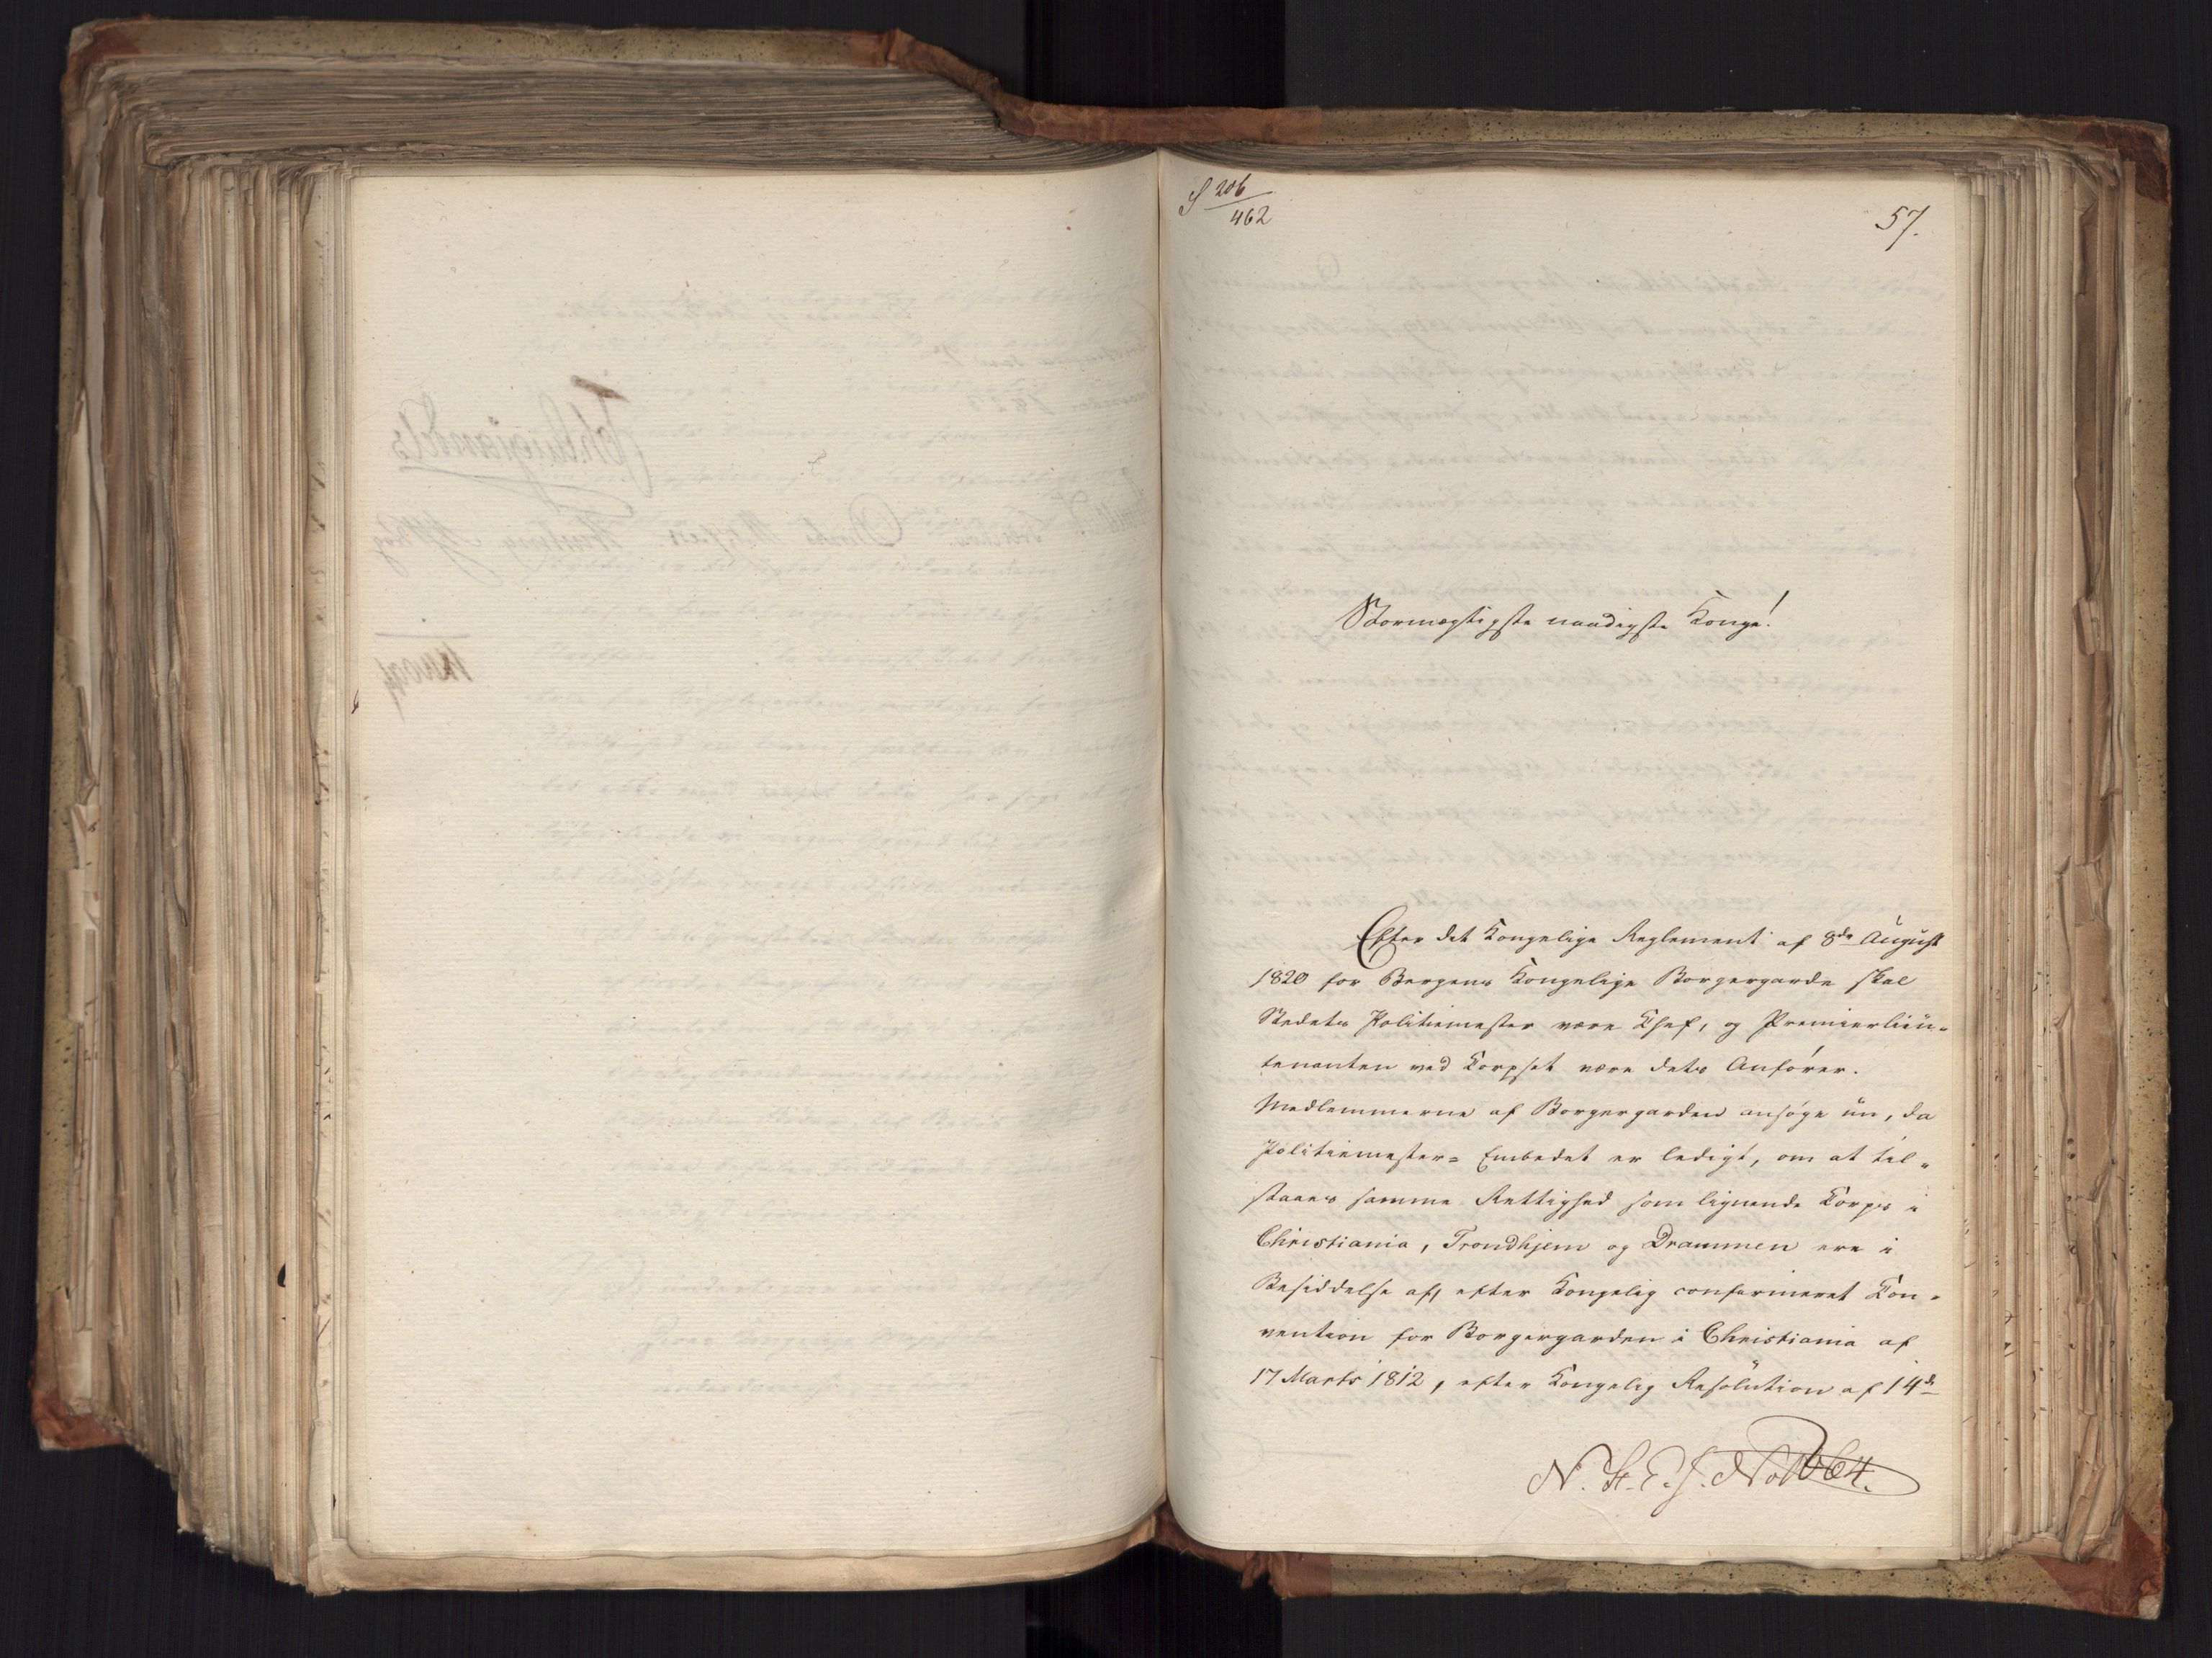 S 206
462
57.
Stormægtigste naadigste Konge!
Efter det Kongelige Reglement af 8de August
1820 for Bergens Kongelige Borgergarde skal
Stedets Politiemester være Chef, og Premierlieu-
tenanten ved Korpset være dets Anfører.
Medlemmerne af Borgergarden ansøge nu, da
Politiemester-Embedet er ledigt, om at til-
staaes samme Rettighed som lignende Korps i
Christiania, Trondhjem og Drammen ere i
Besiddelse af, efter Kongelig confirmeret Con-
vention for Borgergarden i Christiania af
17 Marts 1812, efter Kongelig Resolution af 14de